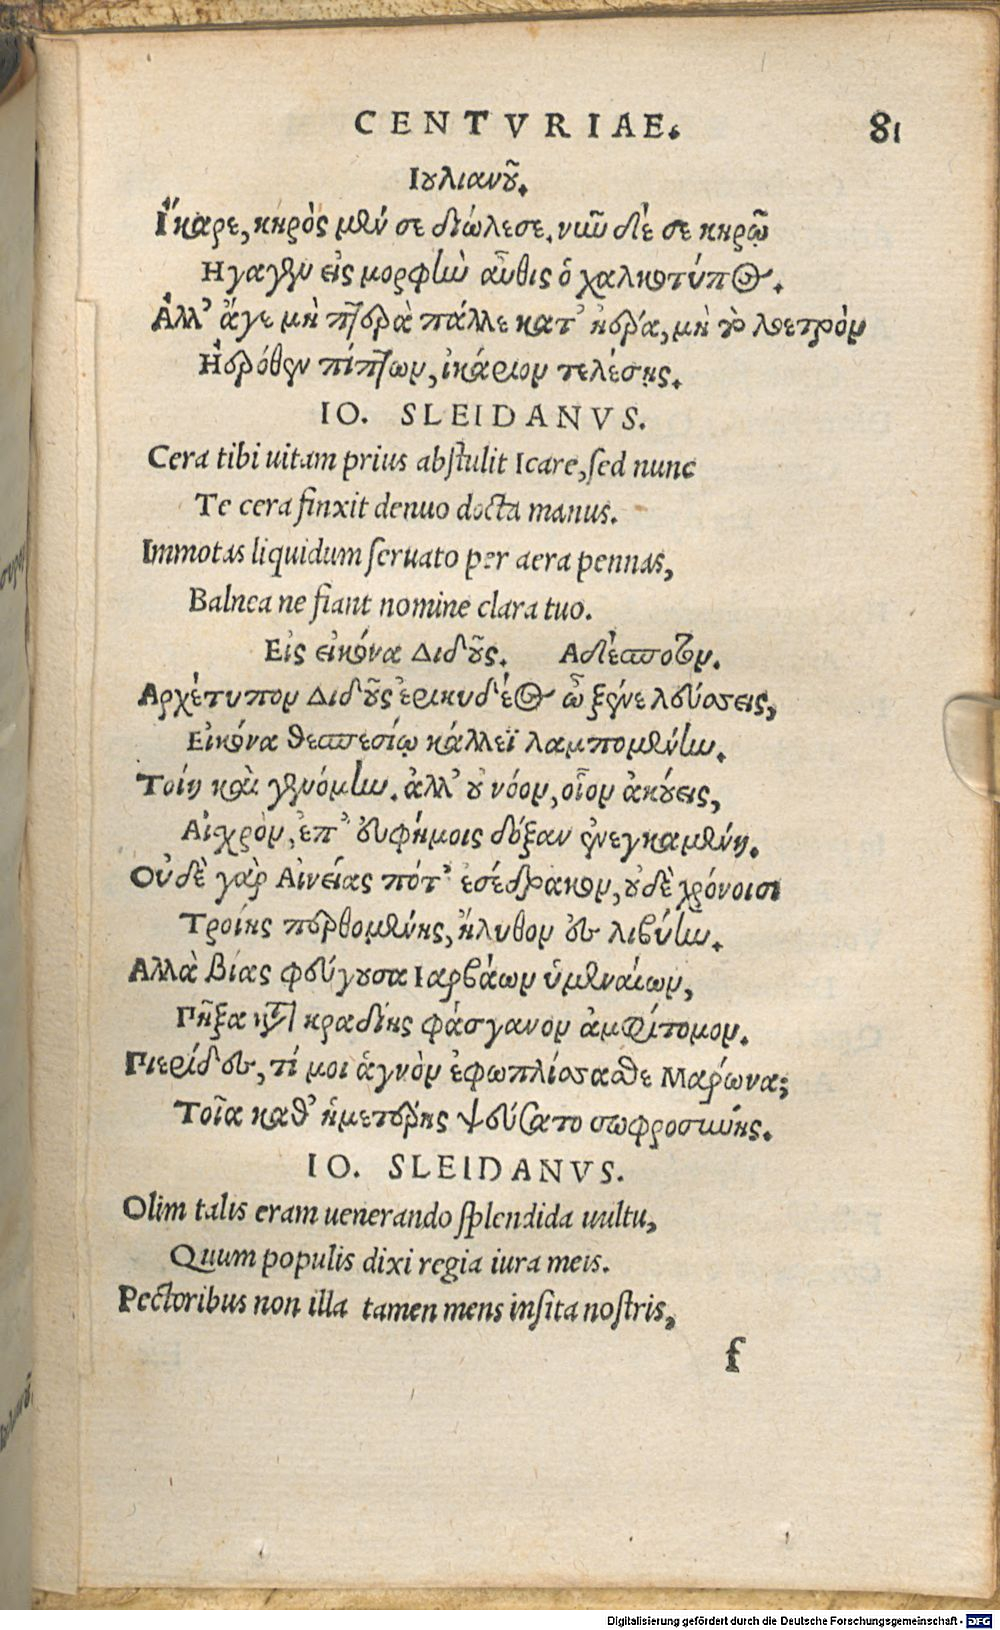 CENTVRIAE. 81
Ιουλιανοῦ.
Ἴκαρε, κηρὸς μέν σε διώλεσε. νῦν δέ σε κηρῷ
Ηγαγεν εἰς μορφὴν αὖθις ὁ χαλκοτύπος.
Ἀλλ᾽ ἄγε μὴ πτερὰ πάλλε κατ᾽ ἠέρα, μὴ τὸ λοετρὸν
Ἠερόθεν πίπτων, ἰκάριον τελέσῃς.
IO. SLEIDANVS.
Cera tibi uitam prius abſtulit Icare, ſed nunc
Te cera finxit denuo docta manus.
Immotas liquidum ſeruato per aera pennas,
Balnea ne fiant nomine clara tuo.
Εἰς εἰκόνα Διδοῦς. Αδέσποτον.
Αρχέτυπον Διδοῦς ἐρικυδέος ὦ ξένε λεύσσεις,
Εἰκόνα θεσπεσίῳ κάλλεϊ λαμπομένην.
Τοίη καὶ γενόμην. ἀλλ᾽ οὐ νόον, οἷον ἀκούεις,
Αἰχρὸν, ἐπ᾽ εὐφήμοις δόξαν ἐνεγκαμένη.
Οὐδὲ γὰρ Αἰνείας πότ᾽ ἐσέδρακον, οὐδὲ χρόνοισι
Τροίης περθομένης, ἤλυθον ἐς λιβύην.
Αλλὰ βίας φεύγουσα Ιαρβάων ὑμεναίων,
Πῆξα κατὰ κραδίης φάσγανον ἀμφίτομον.
Πιερίδες, τί μοι ἁγνὸν ἐφωπλίσσασθε Μάρωνα;
Τοῖα καθ᾽ ἡμετέρης ψεύσατο σωφροσύνης.
IO. SLEIDANVS.
Olim talis eram uenerando ſplendida uultu,
Quum populis dixi regia iura meis.
Pectoribus non illa tamen mens inſita noſtris,
f
Digitalisierung gefördert durch die Deutsche Forschungsgemeinschaft - DFG